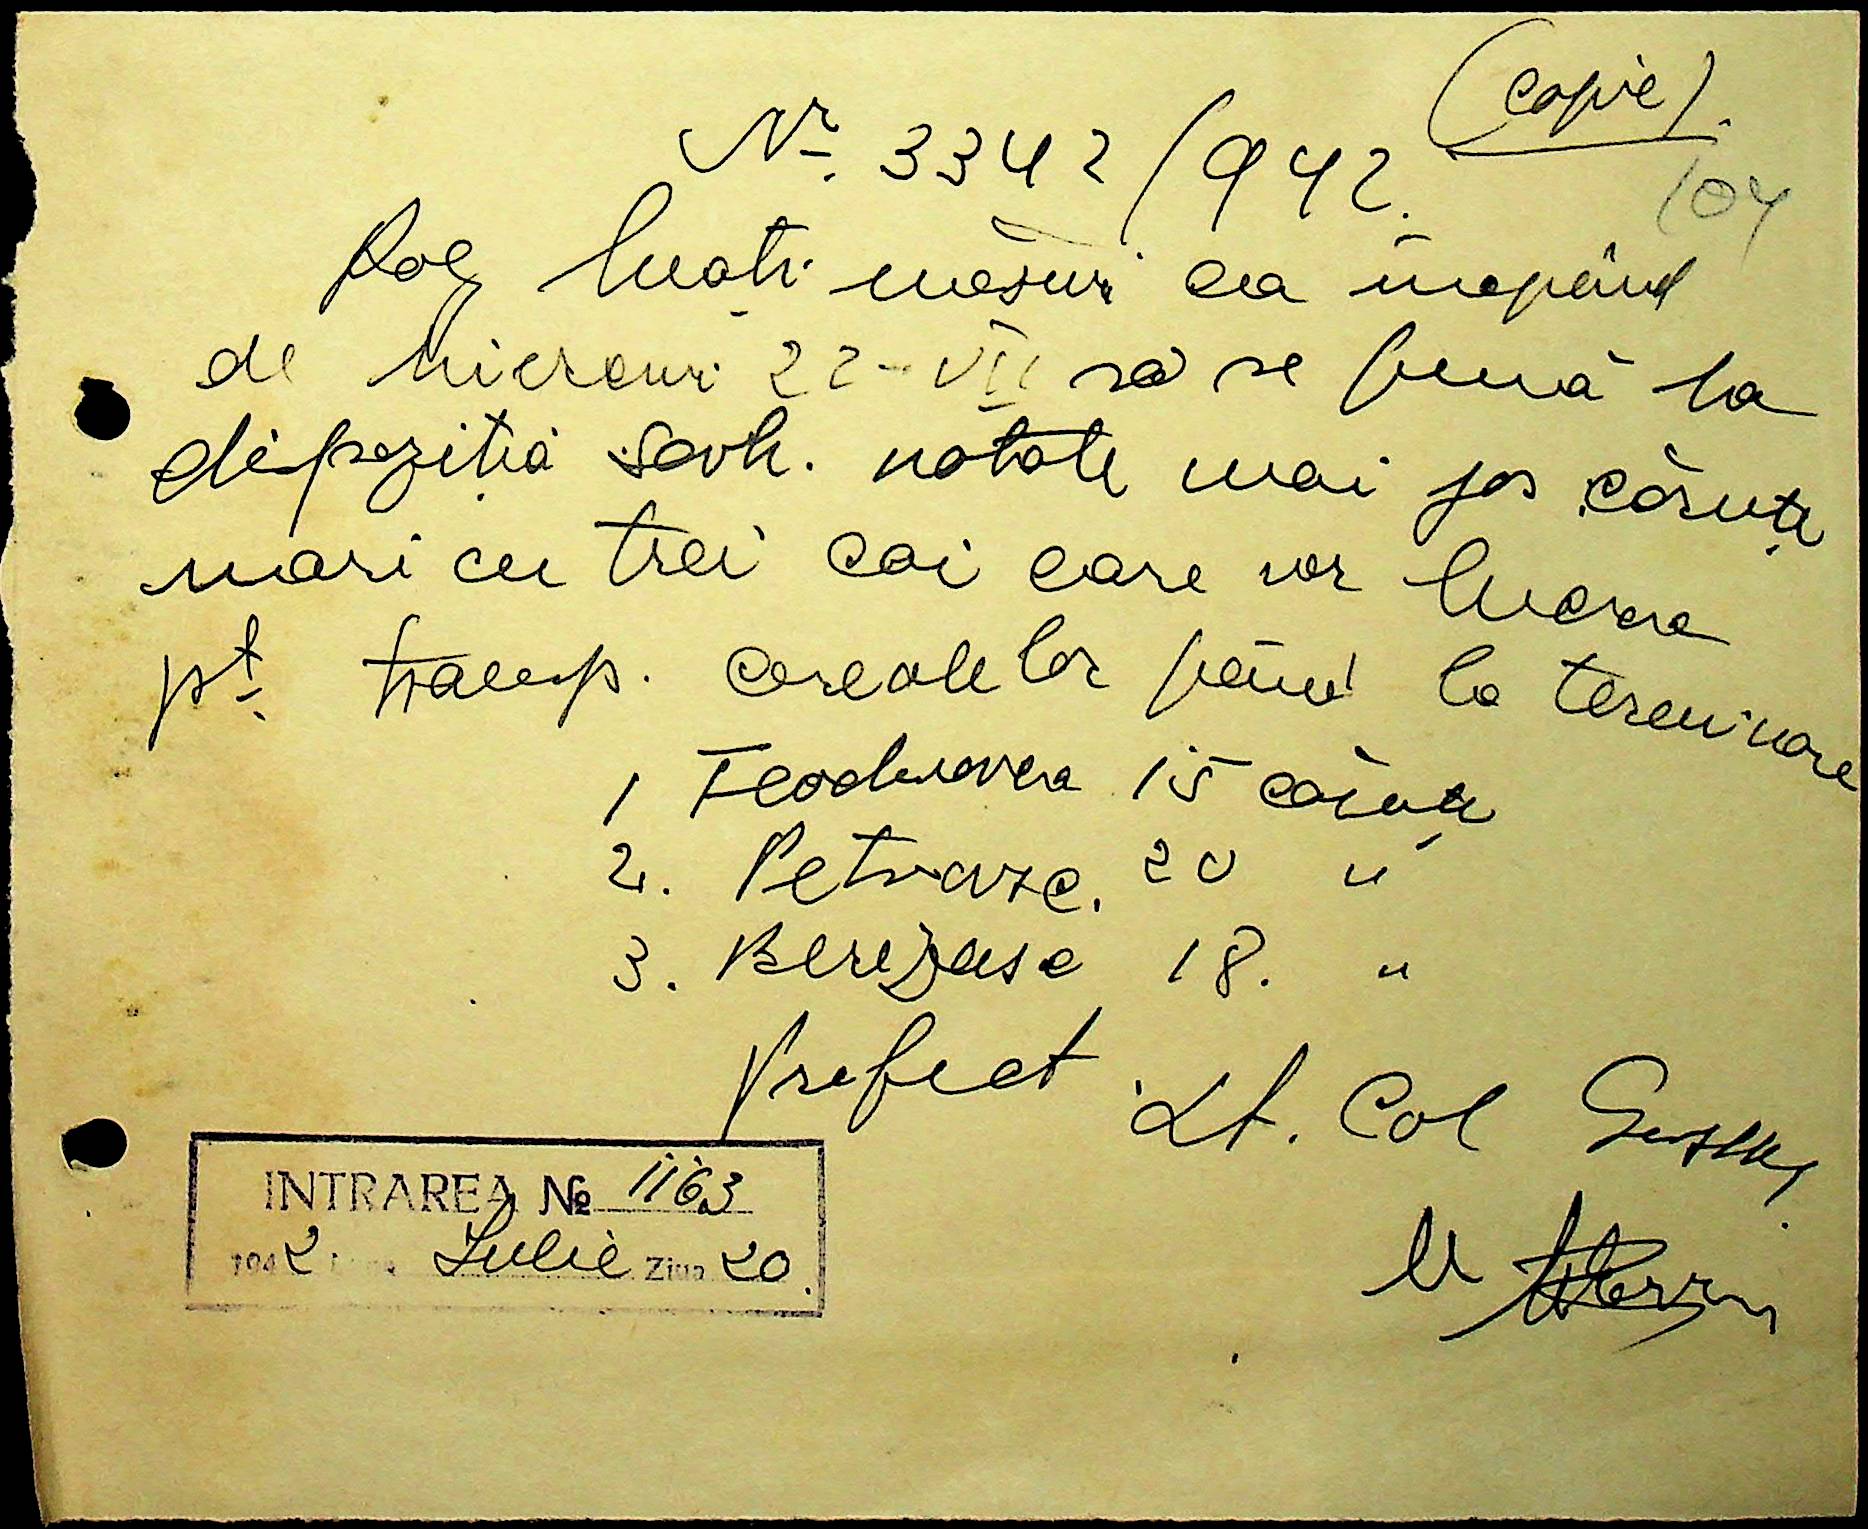 (copie).
Nr. 3342/942.
104
Rog luați măsuri ca începând
de Miercuri 22-VII să se pună la
dispoziția sovh. notate mai jos căruțe
mari cu trei cai care vor lucra
pt. transp. cerealelor până la terminare
1 Feodorovca 15 căruțe
2. Petrovsc. 20 "
3. Berezovsc 18. "
Prefect Lt. Col
INTRAREA № 1163
1942 Iulie Ziua 20.